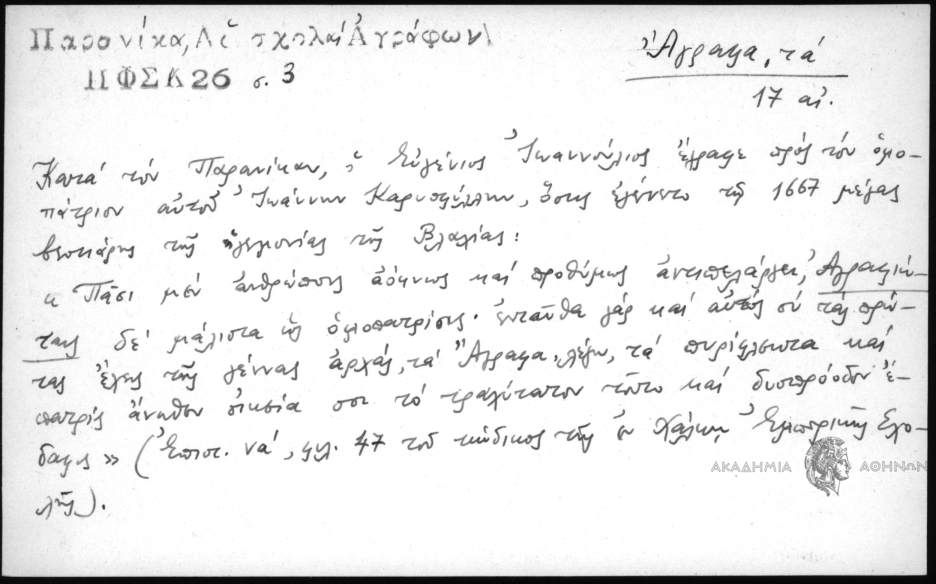 Παρανίκα, Αἱ σχολαί Ἀγράφων
ΠΦΣΚ 26 σ. 3
Ἄγραφα, τά
17 αἰ.
Κατά τόν Παρανίκαν, ὁ Εὐγένιος Ἰωαννούλιος ἔγραφε πρός τόν ὁμο-
πάτριον αὐτοῦ Ἰωάννην Καρυοφύλλην, ὅστις ἐγένετο τῷ 1667 μέγας
βεστιάρης τῆς ἡγεμονίας τῆς Βλαχίας:
« Πᾶσι μέν ἀνθρώποις ἀόκνως καί προθύμως ἀντιπελάργει, Ἀγραφιώ-
ταις δέ μάλιστα ὡς ὁμοπατρίοις. ἐνταῦθα γάρ καί αὐτός σύ τάς πρώ-
τας ἕλκεις τῆς γέννας ἀρχάς, τά Ἄγραφα, λέγω, τά πυρίφλεκτα καί
πατρίς ἄνωθεν οἰκεία σοι τό τραχύτατον τοῦτο καί δυσπρόοδον ἔ-
δαφος » (Ἐπιστ. να΄, φυλ. 47 τοῦ κώδικος τῆς ἐν Χάλκῃ Ἐμπορικῆς Σχο-
λῆς).
ΑΚΑΔΗΜΙΑ ΑΘΗΝΩΝ